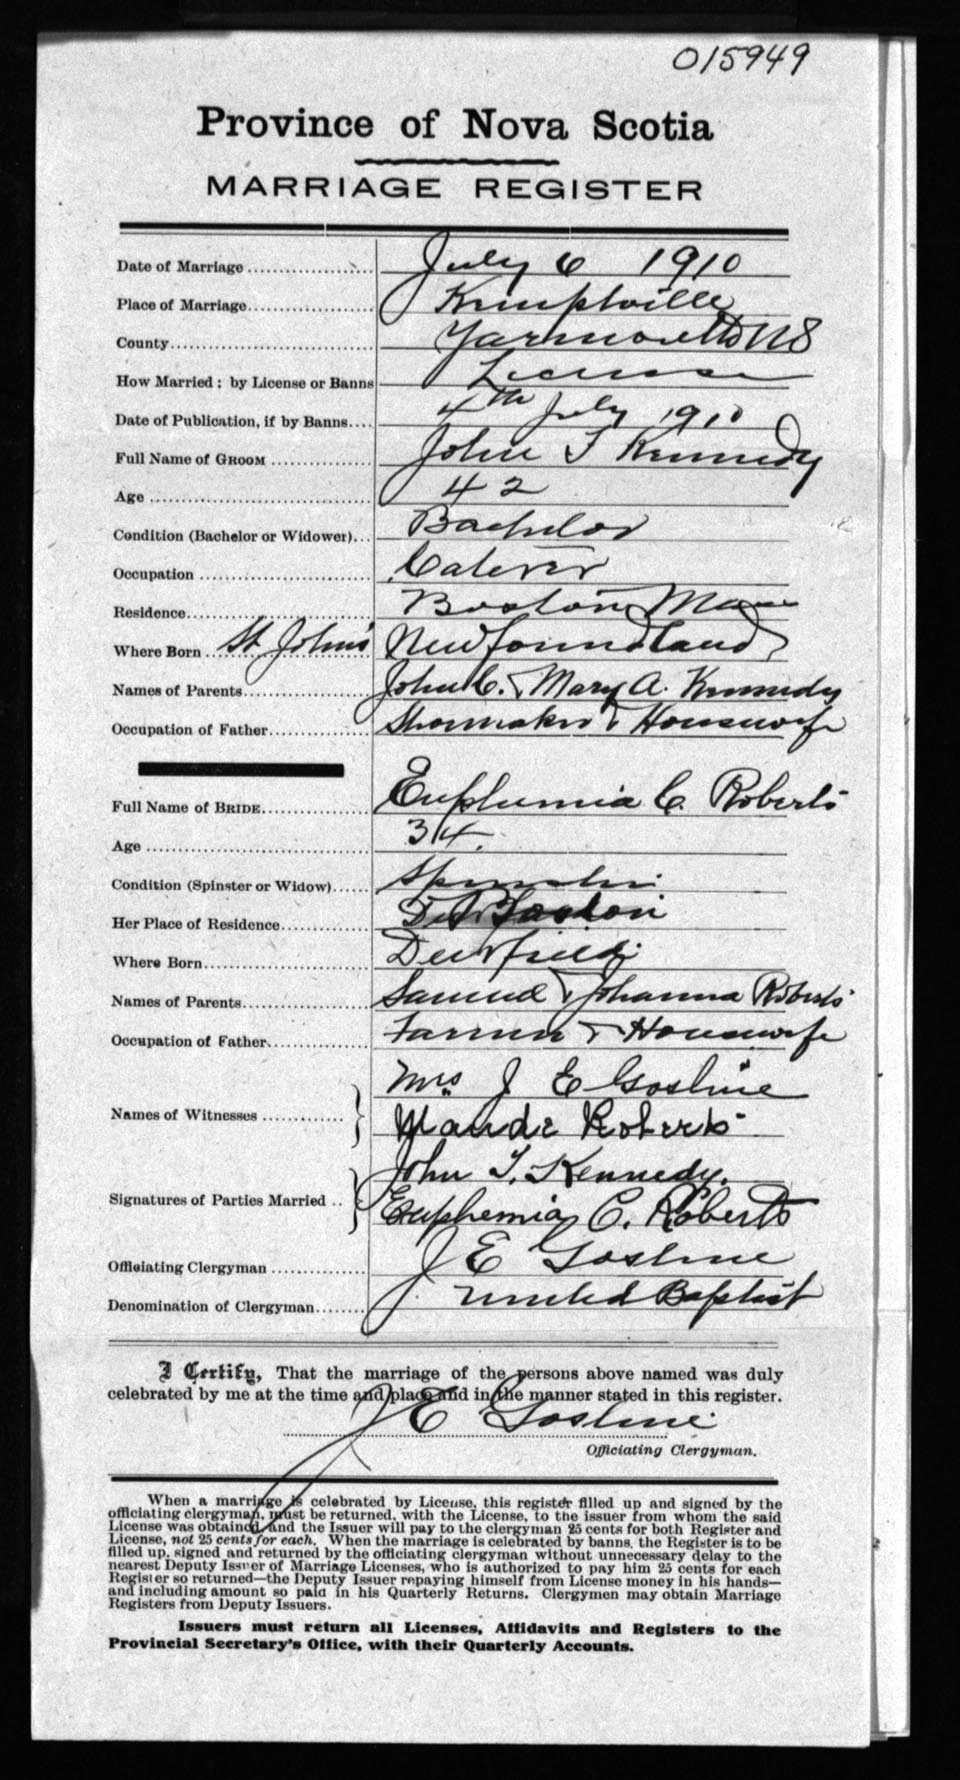 015949
Province of Nova Scotia
MARRIAGE REGISTER
Date of Marriage July 6 1910
Place of Marriage Kemptville
County Yarmouth NS
How Married: by License or Banns License
Date of Publication, if by Banns 4th July 1910
Full Name of GROOM John T Kennedy
Age 42
Condition (Bachelor or Widower) Bachelor
Occupation Caterer
Residence Boston Mass
Where Born St Johns Newfoundland
Names of Parents John C. & Mary A. Kennedy
Occupation of Father Shoemaker & Housewife
Full Name of BRIDE Euphemia C. Roberts
Age 34.
Condition (Spinster or Widow) Spinster
Her Place of Residence Boston
Where Born Deerfield
Names of Parents Samuel & Johanna Roberts
Occupation of Father Farmer & Housewife
Names of Witnesses Mrs J E Gosline
Maude Roberts
Signatures of Parties Married John T. Kennedy.
Euphemia C. Roberts
Officiating Clergyman J E Gosline
Denomination of Clergyman United Baptist
I Certify, That the marriage of the persons above named was duly
celebrated by me at the time and place and in the manner stated in this register.
J E Gosline
Officiating Clergyman.
When a marriage is celebrated by License, this register filled up and signed by the
officiating clergyman, must be returned, with the License, to the issuer from whom the said
License was obtained and the Issuer will pay to the clergyman 25 cents for both Register and
License, not 25 cents for each. When the marriage is celebrated by banns, the Register is to be
filled up, signed and returned by the officiating clergyman without unnecessary delay to the
nearest Deputy Issuer of Marriage Licenses, who is authorized to pay him 25 cents for each
Register so returned—the Deputy Issuer repaying himself from License money in his hands—
and including amount so paid in his Quarterly Returns. Clergymen may obtain Marriage
Registers from Deputy Issuers.
Issuers must return all Licenses, Affidavits and Registers to the
Provincial Secretary's Office, with their Quarterly Accounts.